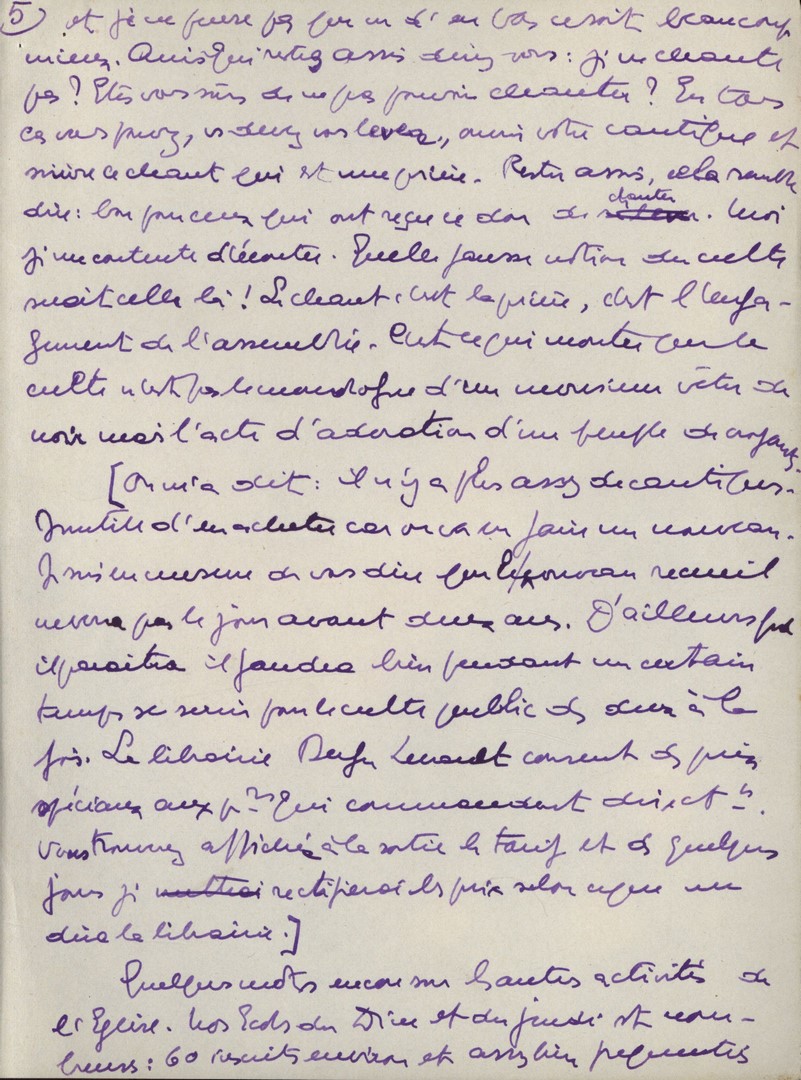 5) et je ne pense pas que vu d'en bas ce soit beaucoup
mieux. Amis qui restez assis direz vous : je ne chante
pas ? Etes vous sûrs de ne pas pouvoir chanter ? En tous
cas vous pouvez, vs devez vous lever, ouvrir votre cantique et
suivre ce chant qui est une prière. Rester assis, cela semble
dire : bon pour ceux qui ont reçu ce don de chanter. Moi
je me contente d'écouter. Quelle fausse notion du culte
serait celle là ! Le chant c'est la prière, c'est l'enga-
gement de l'assemblée. C'est ce qui montre que le
culte n'est pas le monologue d'un monsieur vêtu de
noir mais l'acte d'adoration d'un peuple de croyants.
[On m'a dit : il n'y a plus assez de cantiques.
Inutile d'en acheter car on va en faire un nouveau.
Je suis en mesure de vous dire que le nouveau recueil
ne verra pas le jour avant deux ans. D'ailleurs qd
il paraitra il faudra bien pendant un certain
temps se servir pour le culte public des deux à la
fois. La librairie Berger Levrault consent des prix
spéciaux aux qui commandent direct.
Vous trouverez affiché à la sortie le tarif et ds quelques
jours je rectifierai les prix selon ce que me
dira la librairie.]
Quelques mots encore sur les autres activités de
l'Eglise. Nos Ecoles du Dim et du jeudi st nom-
breuses : 60 inscrits environ et assez bien fréquentées